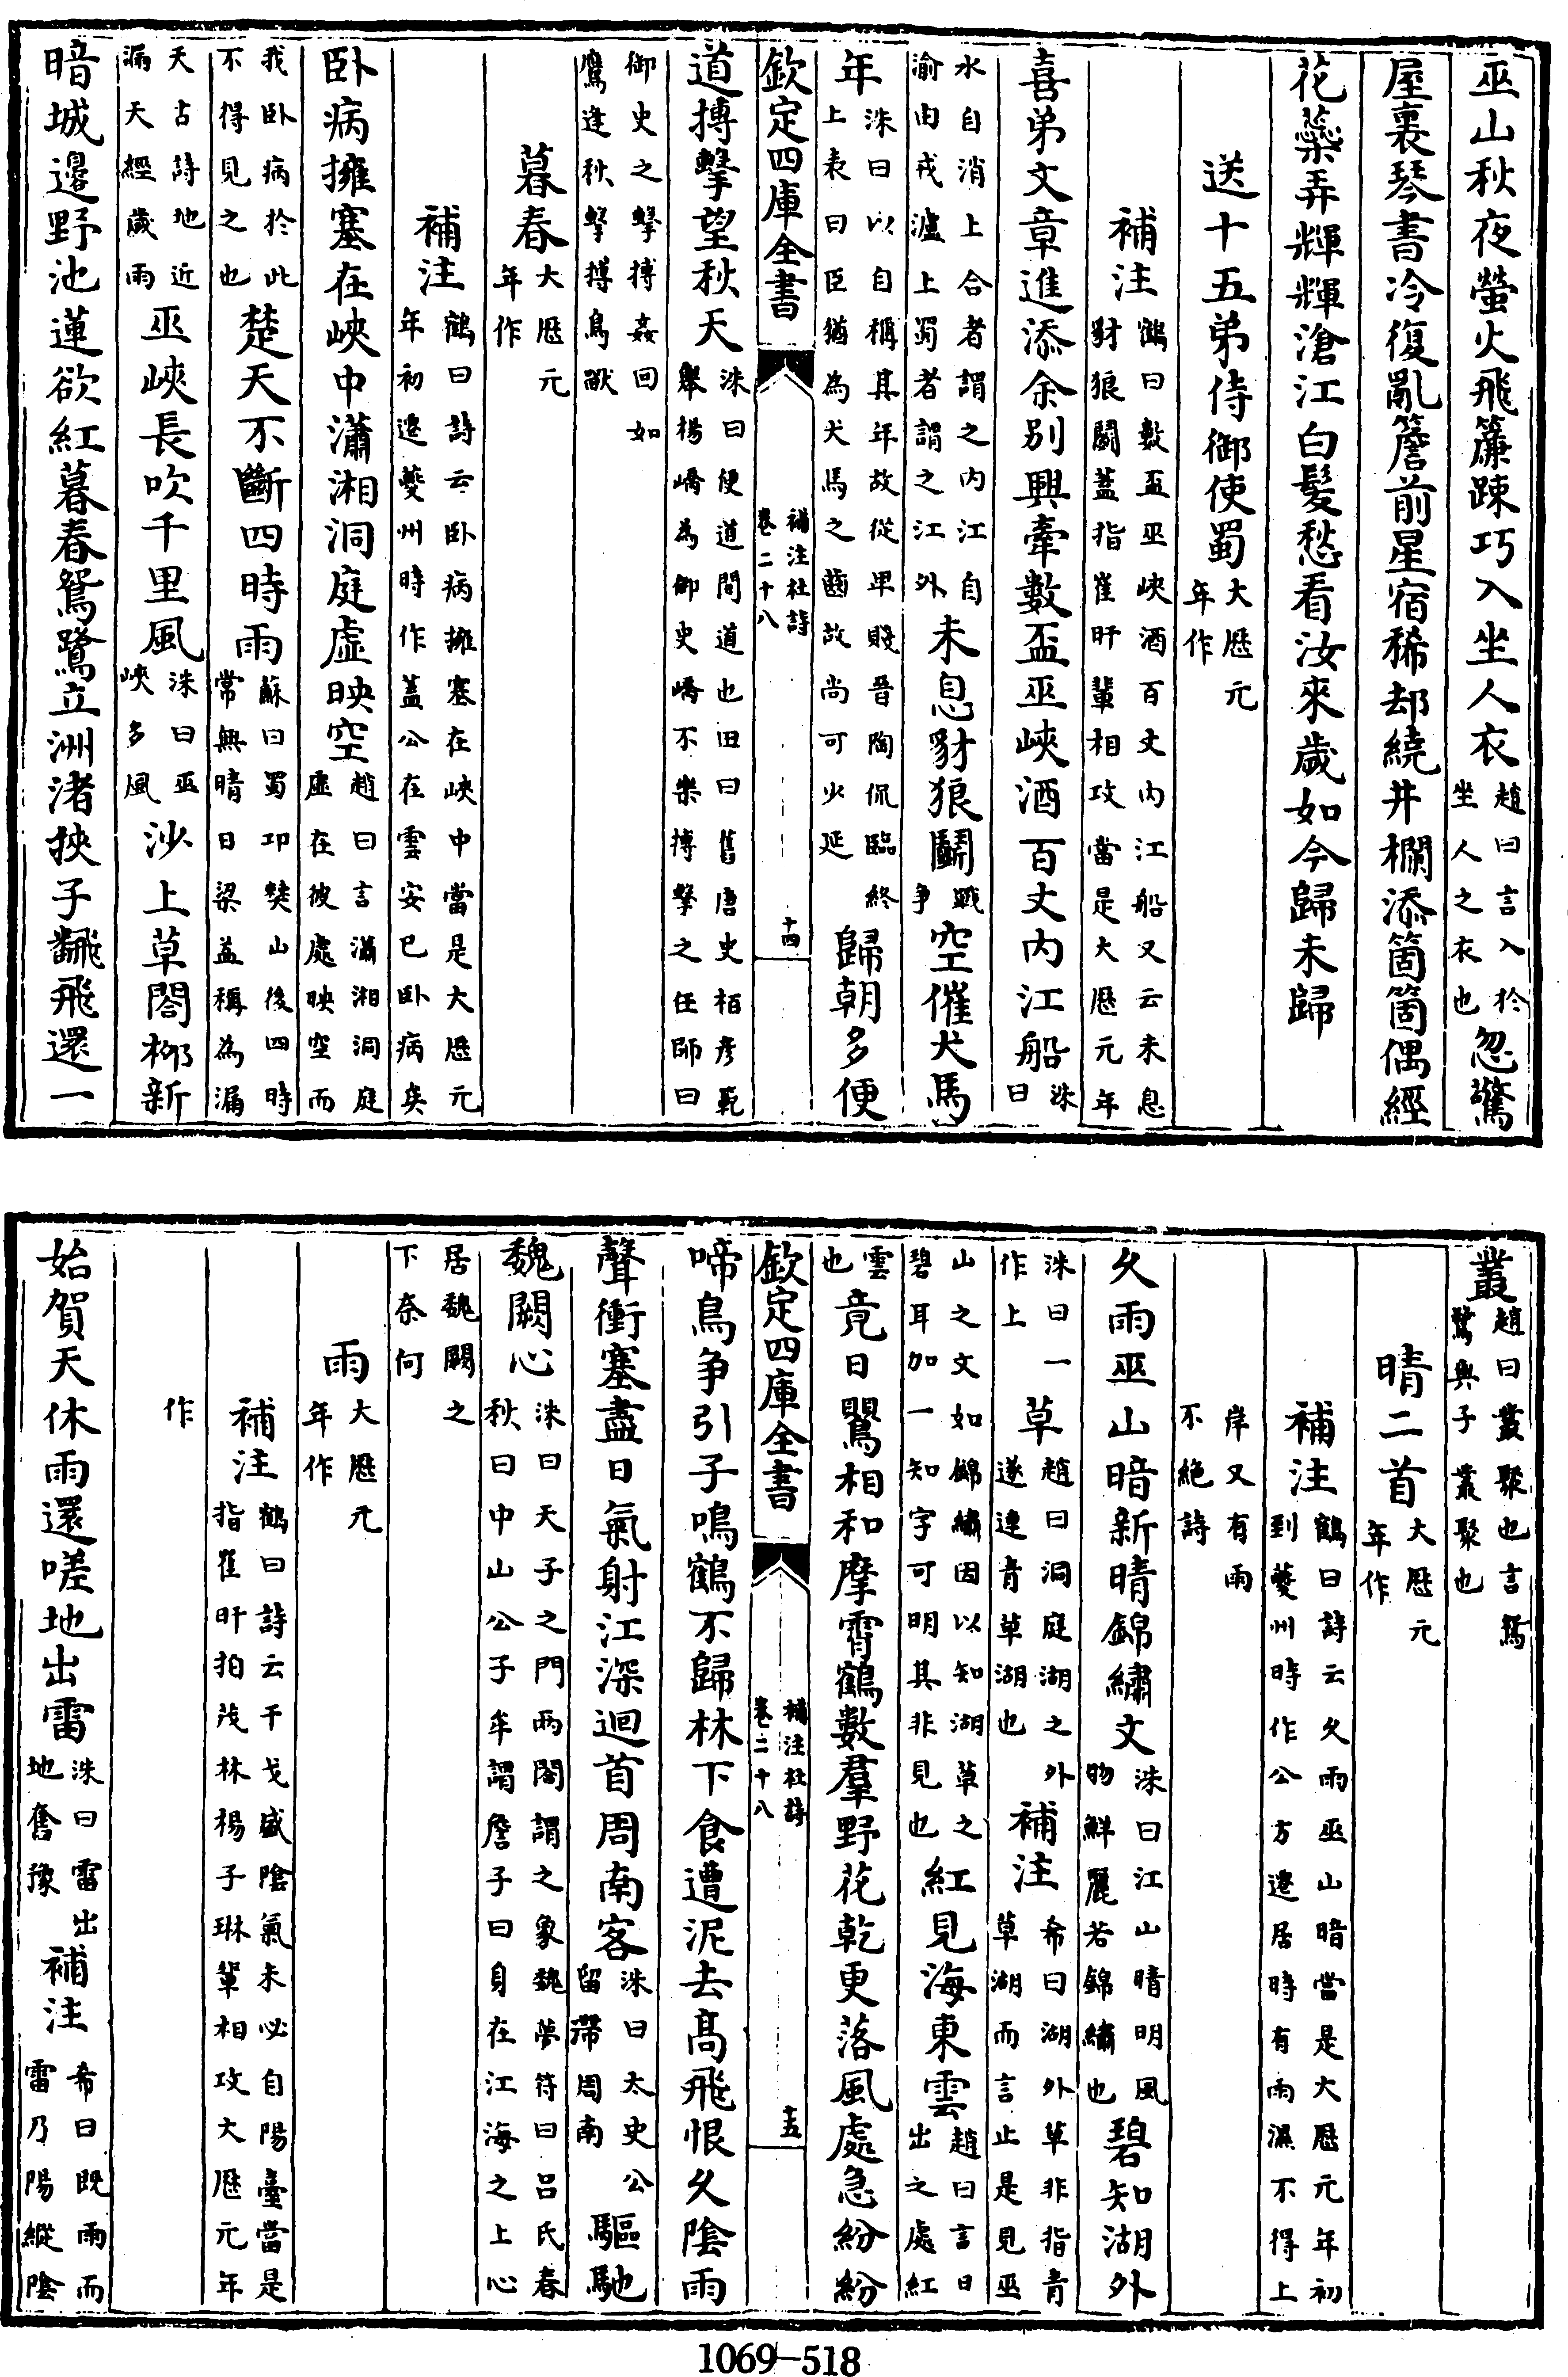 巫山秋夜螢火飛簾踈巧入坐人衣趙曰言入於坐人之衣也忽驚
屋裏琴書冷復亂簷前星宿稀却繞井欄添箇箇偶經
花蘂弄輝輝滄江白髪愁看汝來歲如今歸未歸
送十五弟侍御使蜀大厯元年作
補注鶴曰數盃巫峽酒百丈内江船又云未息豺狼鬭蓋指崔旰輩相攻當是大厯元年
喜弟文章進添余别興牽數盃巫峽酒百丈内江船洙曰
水自消上合者謂之内江自渝由戎瀘上蜀者謂之江外未息豺狼鬭戰爭空催犬馬
年洙曰以自稱其年故從卑賤晉陶侃臨終上表曰臣猶為犬馬之齒故尚可少延歸朝多便
欽定四庫全書
補注杜詩
卷二十八
十四
道搏擊望秋天洙曰便道間道也田曰舊唐史栢彦範舉楊嶠為御史嶠不樂搏擊之任師曰
御史之擊搏姦回如鷹逢秋擊搏鳥獸
暮春大厯元年作
補注鶴曰詩云卧病擁塞在峽中當是大厯元年初遷夔州時作蓋公在雲安已卧病矣
卧病擁塞在峽中瀟湘洞庭虛映空趙曰言瀟湘洞庭虛在彼處映空而
我卧病於此不得見之也楚天不斷四時雨蘇曰蜀邛僰山後四時常無晴日梁益稱為漏
天古詩地近漏天經歲雨巫峽長吹千里風洙曰巫峽多風沙上草閣栁新
暗城邊野池蓮欲紅暮春鴛鷺立洲渚挾子翻飛還一
叢趙曰叢聚也言鴛鷺與子叢聚也
晴二首大厯元年作
補注鶴曰詩云久雨巫山暗當是大厯元年初到夔州時作公方遷居時有雨濕不得上
岸又有雨不絶詩
久雨巫山暗新晴錦繡文洙曰江山晴明風物鮮麗若錦繡也碧知湖外
洙曰一作上草趙曰洞庭湖之外遂連青草湖也補注希曰湖外草非指青草湖而言止是見巫
山之文如錦繡因以知湖草之碧耳加一知字可明其非見也紅見海東雲趙曰言日出之處紅
雲也竟日鸎相和摩霄鶴數羣野花乾更落風處急紛紛
欽定四庫全書
補注杜詩
卷二十八
十五
啼鳥争引子鳴鶴不歸林下食遭泥去髙飛恨久隂雨
聲衝塞盡日氣射江深迴首周南客洙曰太史公留滯周南驅馳
魏闕心洙曰天子之門兩閣謂之象魏夢符曰吕氏春秋曰中山公子牟謂詹子曰身在江海之上心
居魏闕之下奈何
雨大厯元年作
補注鶴曰詩云干戈盛隂氣未必自陽臺當是指崔旰拍茂林楊子琳輩相攻大厯元年
作
始賀天休雨還嗟地出雷洙曰雷出地奮豫補注希曰既雨而雷乃陽縱隂
1069-518